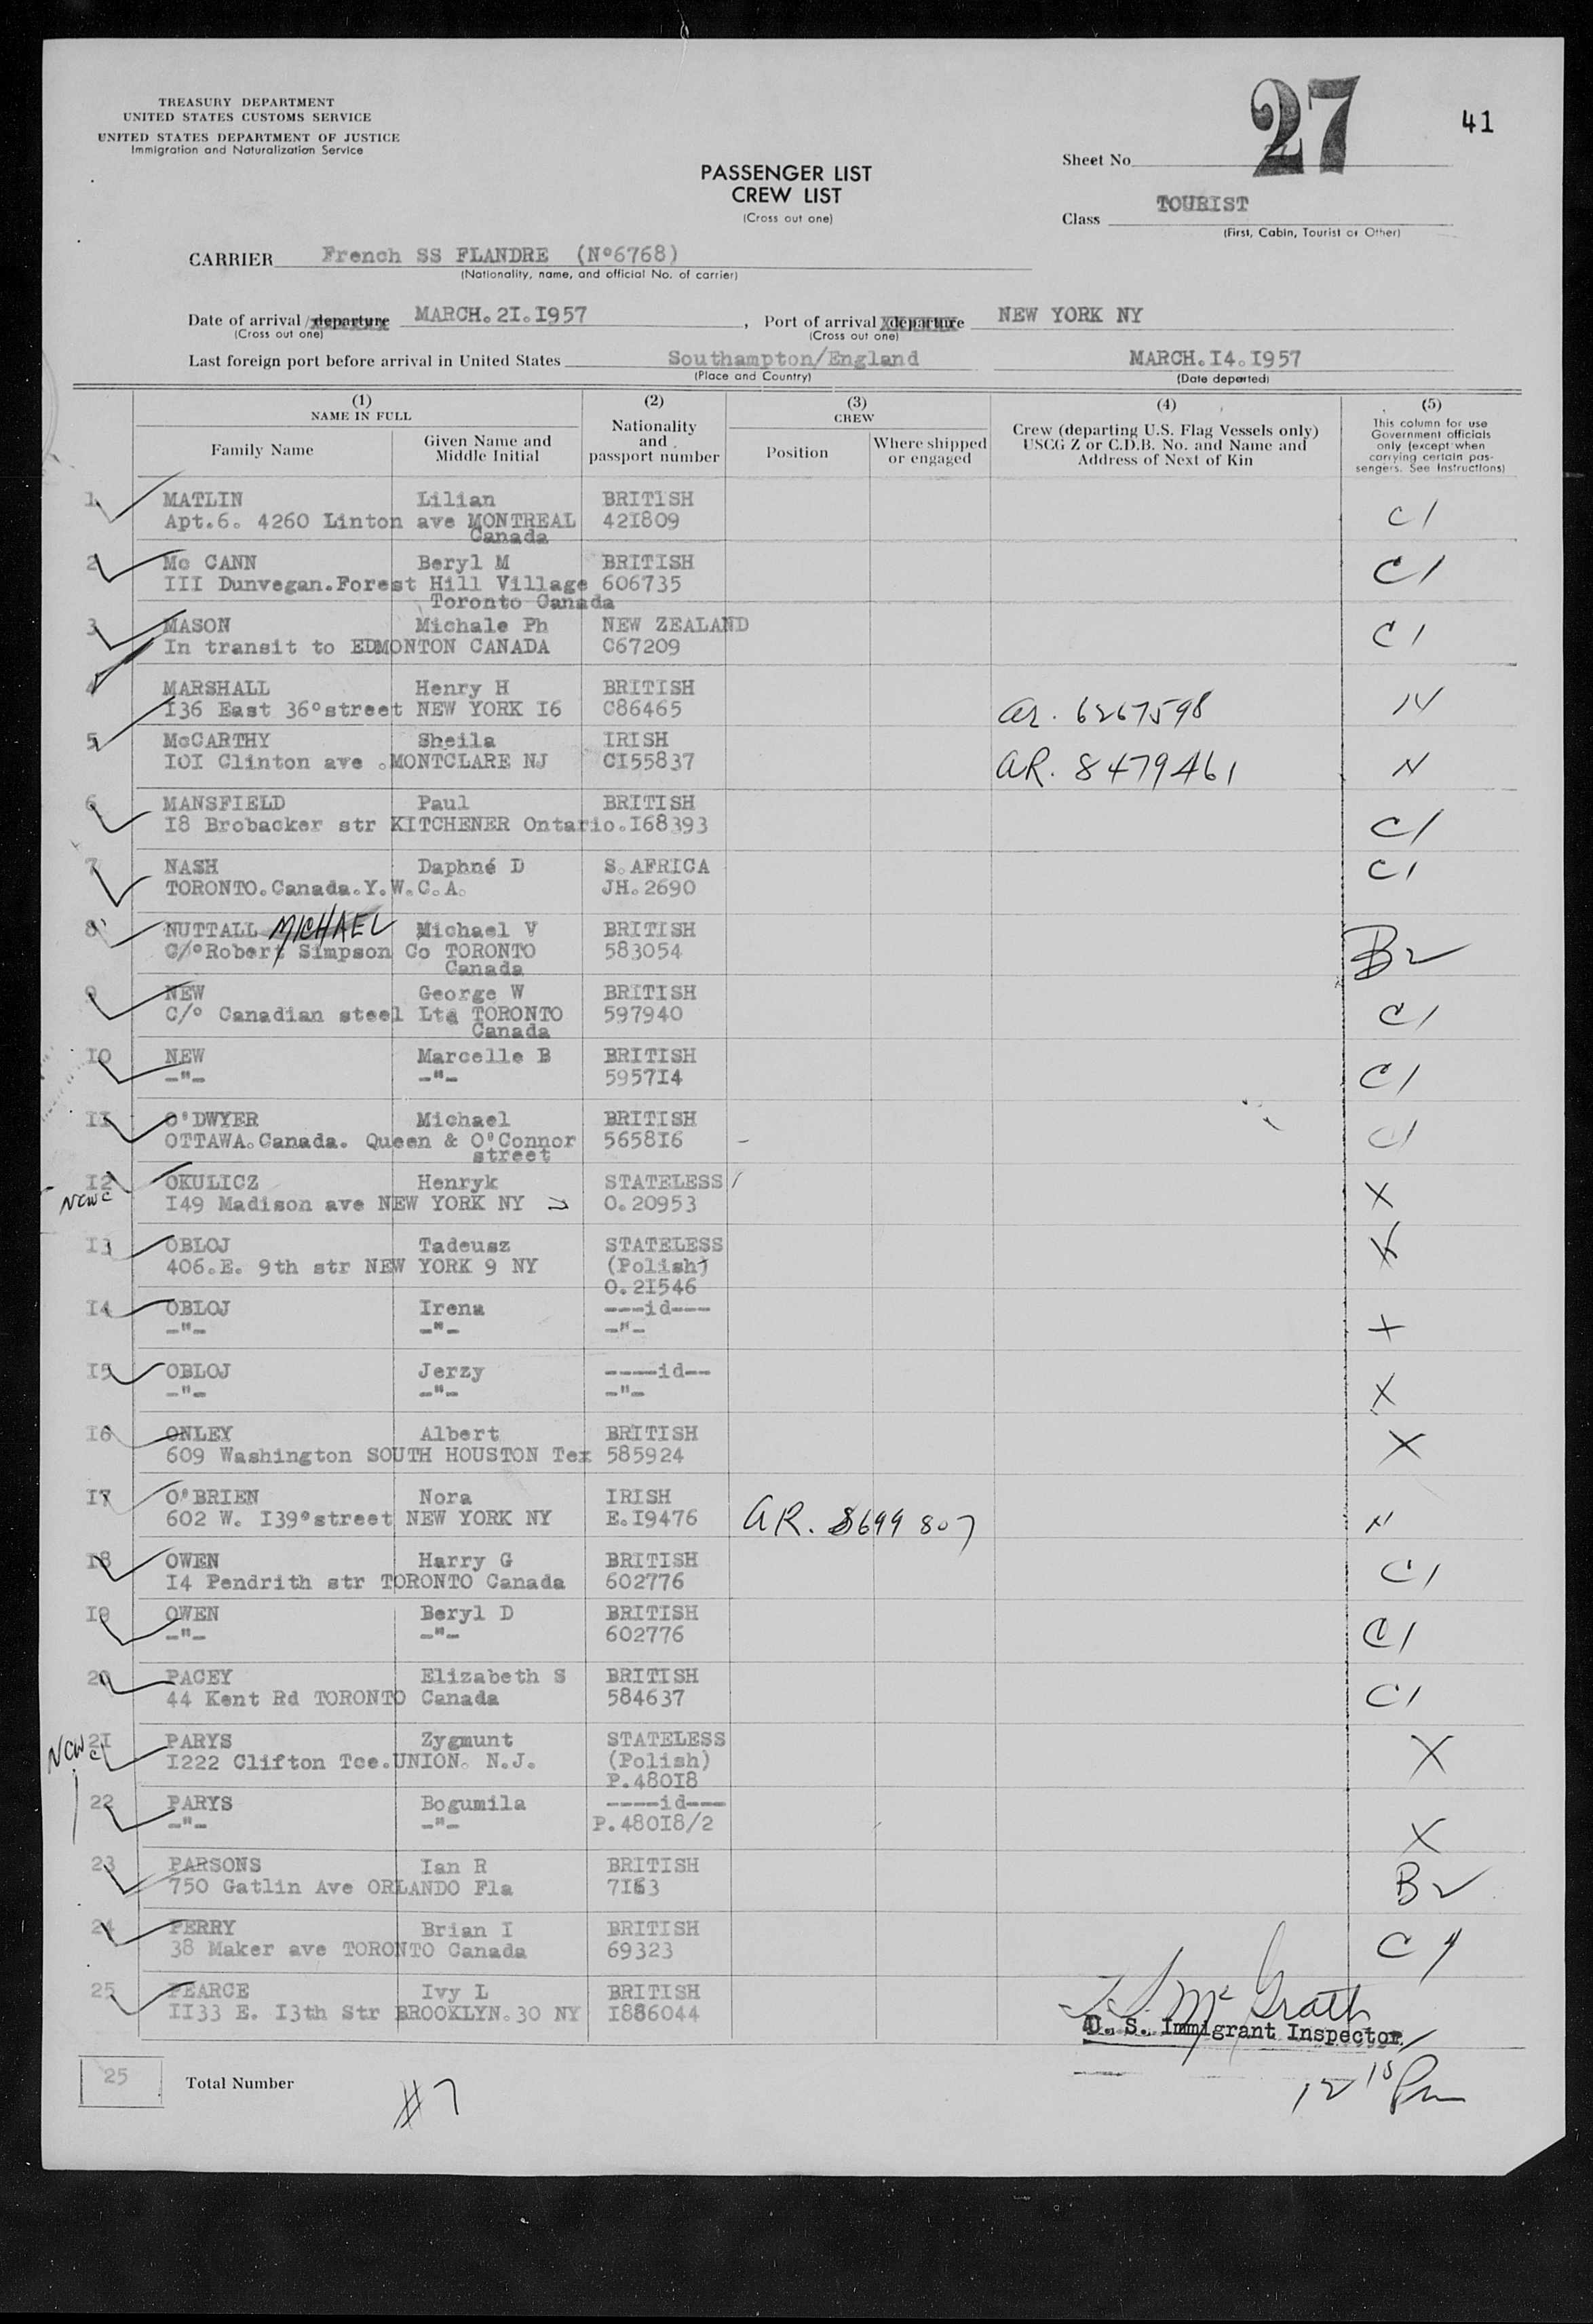 TREASURY DEPARTMENT
UNITED STATES CUSTOMS SERVICE
UNITED STATES DEPARTMENT OF JUSTICE
Immigration and Naturalization Service
27
41
Sheet No.
PASSENGER LIST
CREW LIST
(Cross out one)
Class TOURIST
(First, Cabin, Tourist or Other)
CARRIER French SS FLANDRE (Nº6768)
(Nationality, name, and official No. of carrier)
Date of arrival/departure MARCH.2I.I957, Port of arrival departure NEW YORK NY
(Cross out one) (Cross out one)
Last foreign port before arrival in United States Southampton/England MARCH.I4.I957
(Place and Country) (Date departed)
(1) NAME IN FULL
Family Name
Given Name and Middle Initial
(2) Nationality and passport number
(3) CREW
Position
Where shipped or engaged
(4) Crew (departing U.S. Flag Vessels only) USCG Z or C.D.B. No. and Name and Address of Next of Kin
(5) This column for use Government officials only (except when carrying certain passengers. See Instructions)
1 MATLIN Lilian BRITISH
Apt.6. 4260 Linton ave MONTREAL 42I809 C1
Canada
2 Mc CANN Beryl M BRITISH
III Dunvegan.Forest Hill Village 606735 C1
Toronto Canada
3 MASON Michale Ph NEW ZEALAND
In transit to EDMONTON CANADA C67209 C1
4 MARSHALL Henry H BRITISH
I36 East 36ºstreet NEW YORK I6 C86465 ar. 6267598 N
5 McCARTHY Sheila IRISH
IOI Clinton ave .MONTCLARE NJ CI55837 AR. 8479461 N
6 MANSFIELD Paul BRITISH
I8 Brobacker str KITCHENER Ontario.I68393 C1
7 NASH Daphné D S.AFRICA C1
TORONTO.Canada.Y.W.C.A. JH.2690
8 NUTTALL MICHAEL Michael V BRITISH
C/ºRobert Simpson Co TORONTO 583054 B2
Canada
9 NEW George W BRITISH
C/º Canadian steel Ltd TORONTO 597940 C1
Canada
IO NEW Marcelle B BRITISH
-"- -"- 5957I4 C1
II O'DWYER Michael BRITISH
OTTAWA.Canada. Queen & O'Connor 5658I6 - C1
street
I2 OKULICZ Henryk STATELESS
NCWC I49 Madison ave NEW YORK NY 0.20953 X
I3 OBLOJ Tadeusz STATELESS X
406.E. 9th str NEW YORK 9 NY (Polish)
0.2I546
I4 OBLOJ Irena ---id---
-"- -"- -"- X
I5 OBLOJ Jerzy ----id--
-"- -"- -"- X
I6 ONLEY Albert BRITISH
609 Washington SOUTH HOUSTON Tex 585924 X
I7 O'BRIEN Nora IRISH
602 W. I39ºstreet NEW YORK NY E.I9476 AR. 8699807 N
I8 OWEN Harry G BRITISH
I4 Pendrith str TORONTO Canada 602776 C1
I9 OWEN Beryl D BRITISH
-"- -"- 602776 C1
20 PACEY Elizabeth S BRITISH
44 Kent Rd TORONTO Canada 584637 C1
NCWC 2I PARYS Zygmunt STATELESS
I222 Clifton Tce.UNION. N.J. (Polish) X
P.480I8
22 PARYS Bogumila ----id---
-"- -"- P.480I8/2 X
23 PARSONS Ian R BRITISH
750 Gatlin Ave ORLANDO Fla 7I63 B2
24 PERRY Brian I BRITISH
38 Maker ave TORONTO Canada 69323 C1
25 PEARCE Ivy L BRITISH
II33 E. I3th Str BROOKLYN.30 NY I886044
McGrath
U. S. Immigrant Inspector
25 Total Number
#7
12 15 Pm